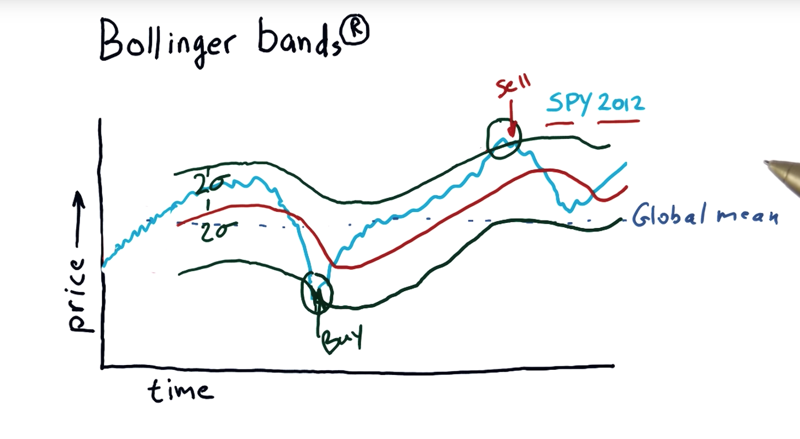 Bollinger bands®
sell
SPY 2012
2σ
2σ
Global mean
Buy
price
time